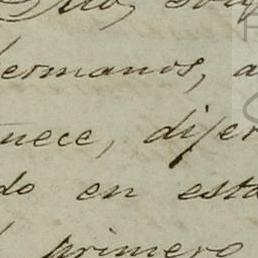 hermanos, a
nece, dijer
do en esta
primero